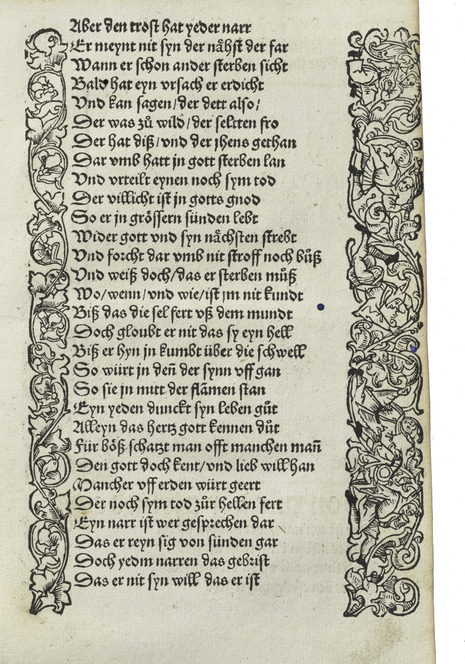 Aber den trost hat yeder narr
Er meynt nit syn der nåhst der far
Wann er schon ander sterben sicht
Bald hat eyn vrsach er erdicht
Vnd kan sagen/der dett also/
Der was zů wild/der seltten fro
Der hat diß/vnd der jhens gethan
Dar vmb hatt jn gott sterben lan
Vnd vrteilt eynen noch sym tod
Der villicht ist jn gotts gnod
So er jn grössern sünden lebt
Wider gott vnd syn nåchsten strebt
Vnd forcht dar vmb nit stroff noch bůß
Vnd weiß doch/das er sterben můß
Wo/wenn/vnd wie/ist jm nit kundt
Biß das die sel fert vß dem mundt
Doch gloubt er nit das sy eyn hell
Biß er hyn jn kumbt über die schwell
So würt jn deñ der synn vff gan
So sie jn mitt der flāmen stan
Eyn yeden dunckt syn leben gůt
Alleyn das hertz gott kennen důt
Für böß schatzt man offt manchen mañ
Den gott doch kent/vnd lieb will han
Mancher vff erden würt geert
Der noch sym tod zůr hellen fert
Eyn narr ist wer gesprechen dar
Das er reyn sig von sünden gar
Doch yedm narren das gebrist
Das er nit syn will das er ist